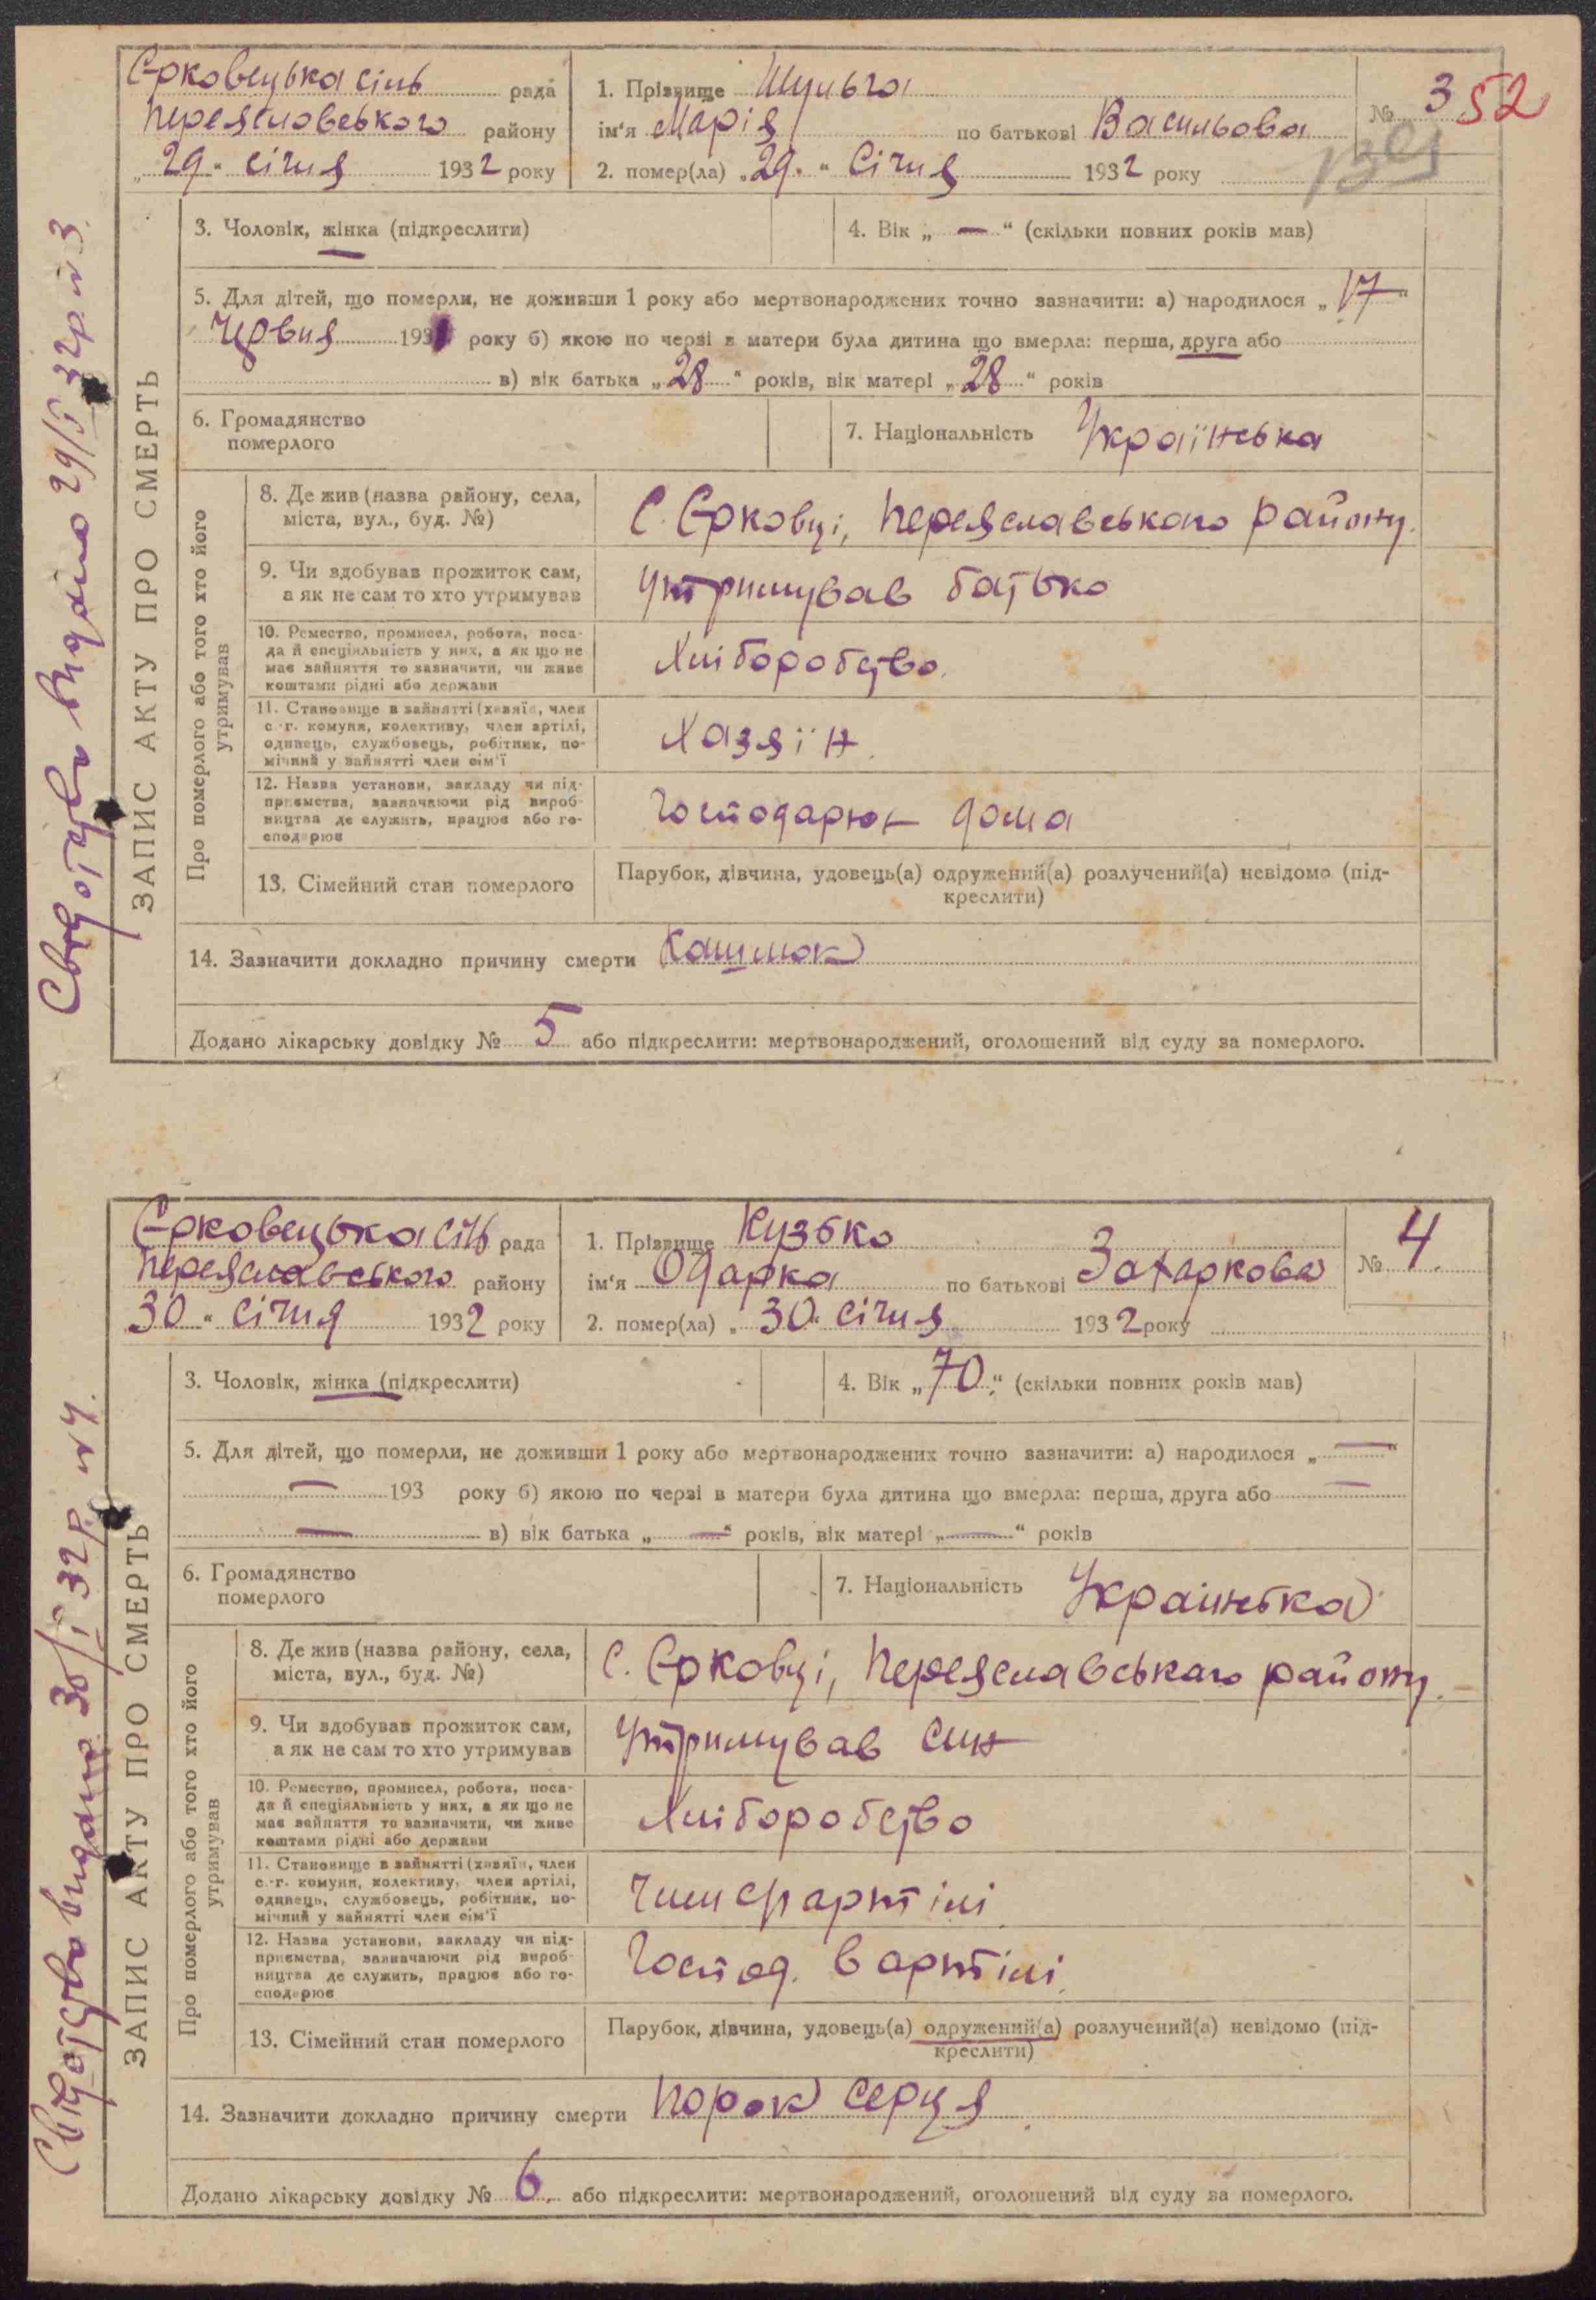 Єрковецька сіль рада
Переяславського району
„29" січня 1932 року
1. Прізвище Шульга
ім'я Марія по батькові Васильова
2. помер(ла) „29." Січня 1932 року
№ 3
52
3. Чоловік, жінка (підкреслити)
4. Вік „—" (скільки повних років мав)
5. Для дітей, що померли, не доживши 1 року або мертвонароджених точно зазначити: а) народилося „17"
Червня 1931 року б) якою по черзі в матери була дитина що вмерла: перша, друга або
в) вік батька „28" років, вік матері „28" років
6. Громадянство
померлого
7. Національність Українська
ЗАПИС АКТУ ПРО СМЕРТЬ
Свідотцво видано 29/I 32р. № 3.
Про померлого або того хто його
утримував
8. Де жив (назва району, села,
міста, вул., буд. №)
С. Єрковці, Переяславського району.
9. Чи здобував прожиток сам,
а як не сам то хто утримував
Утримував батько
10. Ремество, промисел, робота, поса-
да й спеціяльність у них, а як що не
має зайняття то зазначити, чи живе
коштами рідні або держави
Хліборобство.
11. Становище в зайнятті (хазяїн, член
с.-г. комуни, колективу, член артілі,
одинець, службовець, робітник, по-
мічний у зайнятті член сім'ї
Хазяїн.
12. Назва установи, закладу чи під-
приємства, зазначаючи рід вироб-
ництва де служить, працює або го-
сподарює
Господарює дома
13. Сімейний стан померлого
Парубок, дівчина, удовець(а) одружений(а) розлучений(а) невідомо (під-
креслити)
14. Зазначити докладно причину смерти Кашлюк
Додано лікарську довідку № 5 або підкреслити: мертвонароджений, оголошений від суду за померлого.
Єрковецька сіль рада
Переяславського району
30 " січня 1932 року
1. Прізвище Кузько
ім'я Одарка по батькові Захаркова
2. помер(ла) „30" січня 1932 року
№ 4.
3. Чоловік, жінка (підкреслити)
4. Вік „70" (скільки повних років мав)
5. Для дітей, що померли, не доживши 1 року або мертвонароджених точно зазначити: а) народилося „—"
— 193 року б) якою по черзі в матери була дитина що вмерла: перша, друга або —
— в) вік батька „—" років, вік матері „—" років
6. Громадянство
померлого
7. Національність Українська
ЗАПИС АКТУ ПРО СМЕРТЬ
Свідотцво видано 30/I 32р. № 4.
Про померлого або того хто його
утримував
8. Де жив (назва району, села,
міста, вул., буд. №)
С. Єрковці, Переяславського району.
9. Чи здобував прожиток сам,
а як не сам то хто утримував
Утримував син
10. Ремество, промисел, робота, поса-
да й спеціяльність у них, а як що не
має зайняття то зазначити, чи живе
коштами рідні або держави
Хліборобство
11. Становище в зайнятті (хазяїн, член
с.-г. комуни, колективу, член артілі,
одинець, службовець, робітник, по-
мічний у зайнятті член сім'ї
Член с/г артілі
12. Назва установи, закладу чи під-
приємства, зазначаючи рід вироб-
ництва де служить, працює або го-
сподарює
Господ. в артілі.
13. Сімейний стан померлого
Парубок, дівчина, удовець(а) одружений(а) розлучений(а) невідомо (під-
креслити)
14. Зазначити докладно причину смерти Порок серця
Додано лікарську довідку № 6 або підкреслити: мертвонароджений, оголошений від суду за померлого.